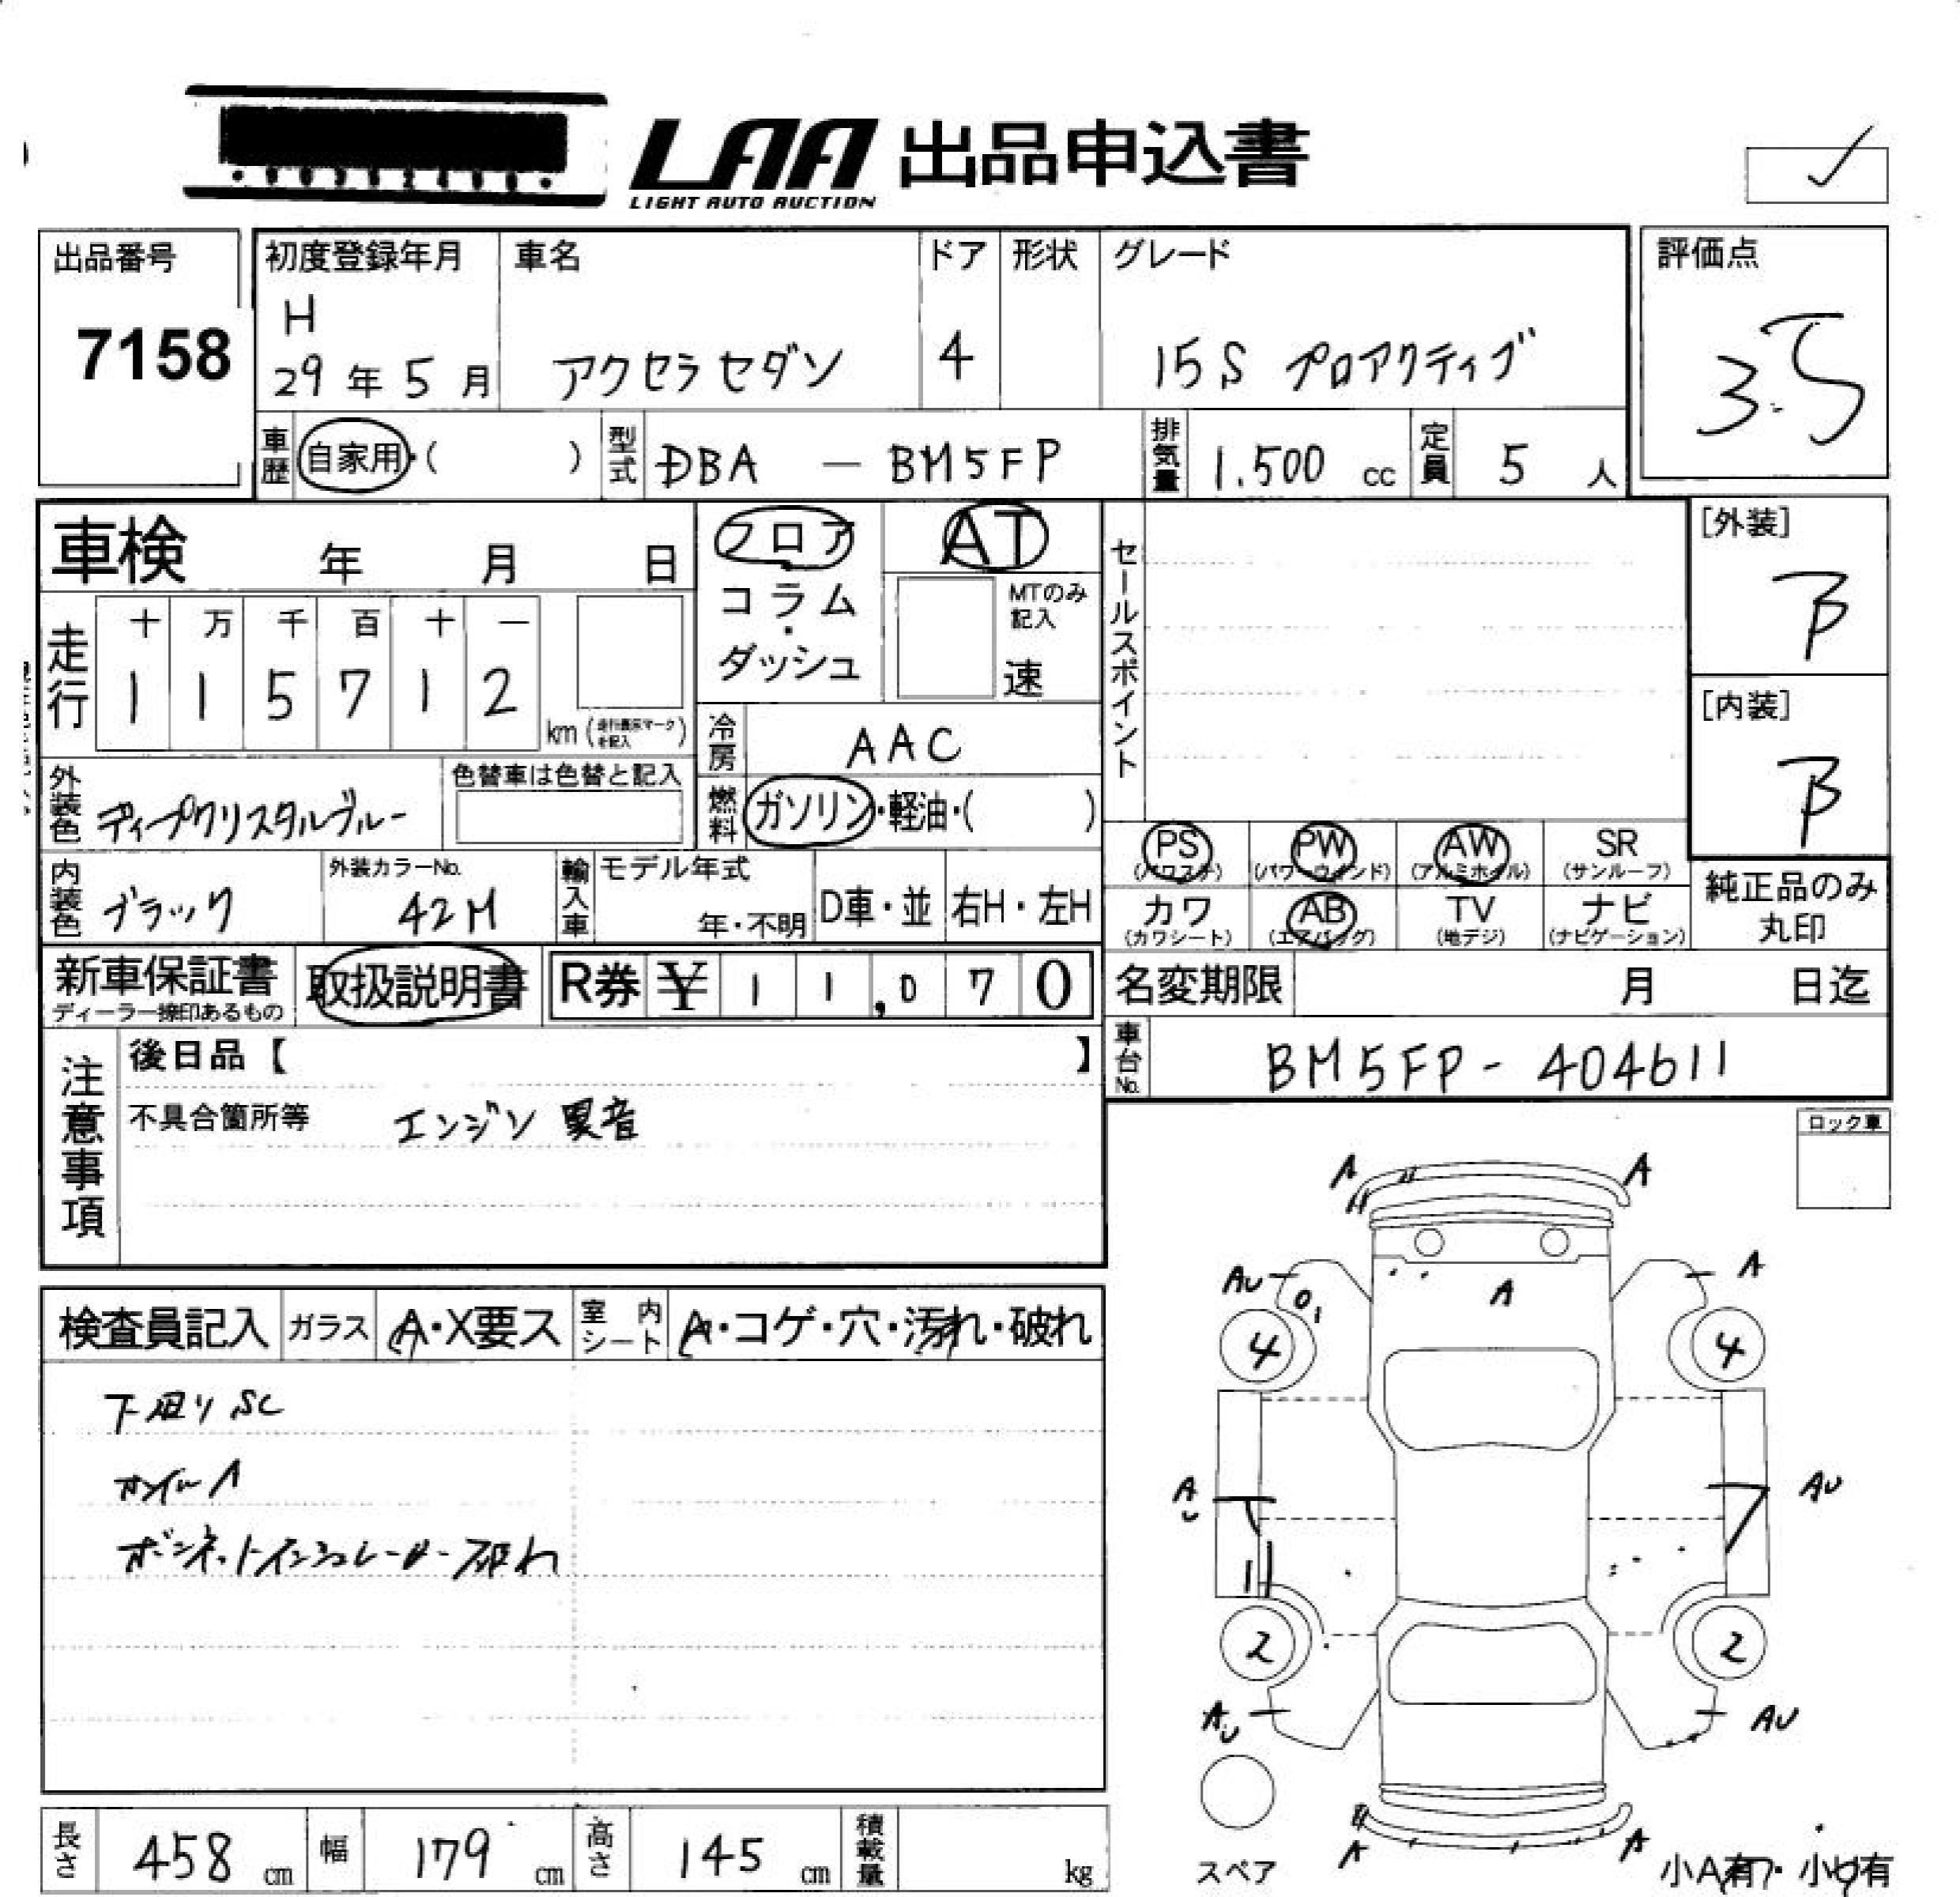 LAA 出品申込書
LIGHT AUTO AUCTION
出品番号
7158
初度登録年月
H
29年5月
車名
アクセラセダン
ドア
4
形状
グレード
15S プロアクティブ
評価点
3.5
車歴
自家用・( )
型式
DBA — BM5FP
排気量
1.500 cc
定員
5 人
車検 年 月 日
フロア
コラム
・
ダッシュ
AT
MTのみ
記入
速
セールスポイント
[外装]
B
[内装]
B
走行
十 万 千 百 十 一
1 1 5 7 1 2
km (走行表示マークを記入)
冷房
AAC
燃料
ガソリン・軽油・( )
外装色
ディープクリスタルブルー
色替車は色替と記入
内装色
ブラック
外装カラーNo.
42M
輸入車
モデル年式
年・不明
D車・並
右H・左H
PS
(パワステ)
PW
(パワーウインド)
AW
(アルミホイル)
SR
(サンルーフ)
カワ
(カワシート)
AB
(エアバッグ)
TV
(地デジ)
ナビ
(ナビゲーション)
純正品のみ
丸印
新車保証書
ディーラー捺印あるもの
取扱説明書
R券 ¥ 1 1,0 7 0
名変期限 月 日迄
車台No.
BM5FP-404611
注意事項
後日品【 】
不具合箇所等 エンジン異音
ロック車
検査員記入
ガラス
A・X要ス
室内シート
A・コゲ・穴・汚れ・破れ
下廻りSC
ホイルA
ボンネットインシュレーター破れ
A A
AU A
A
4 4
A
U
AU
2 2
AU AU
A A
スペア
小A有・小U有
長さ
458 cm
幅
179 cm
高さ
145 cm
積載量
kg